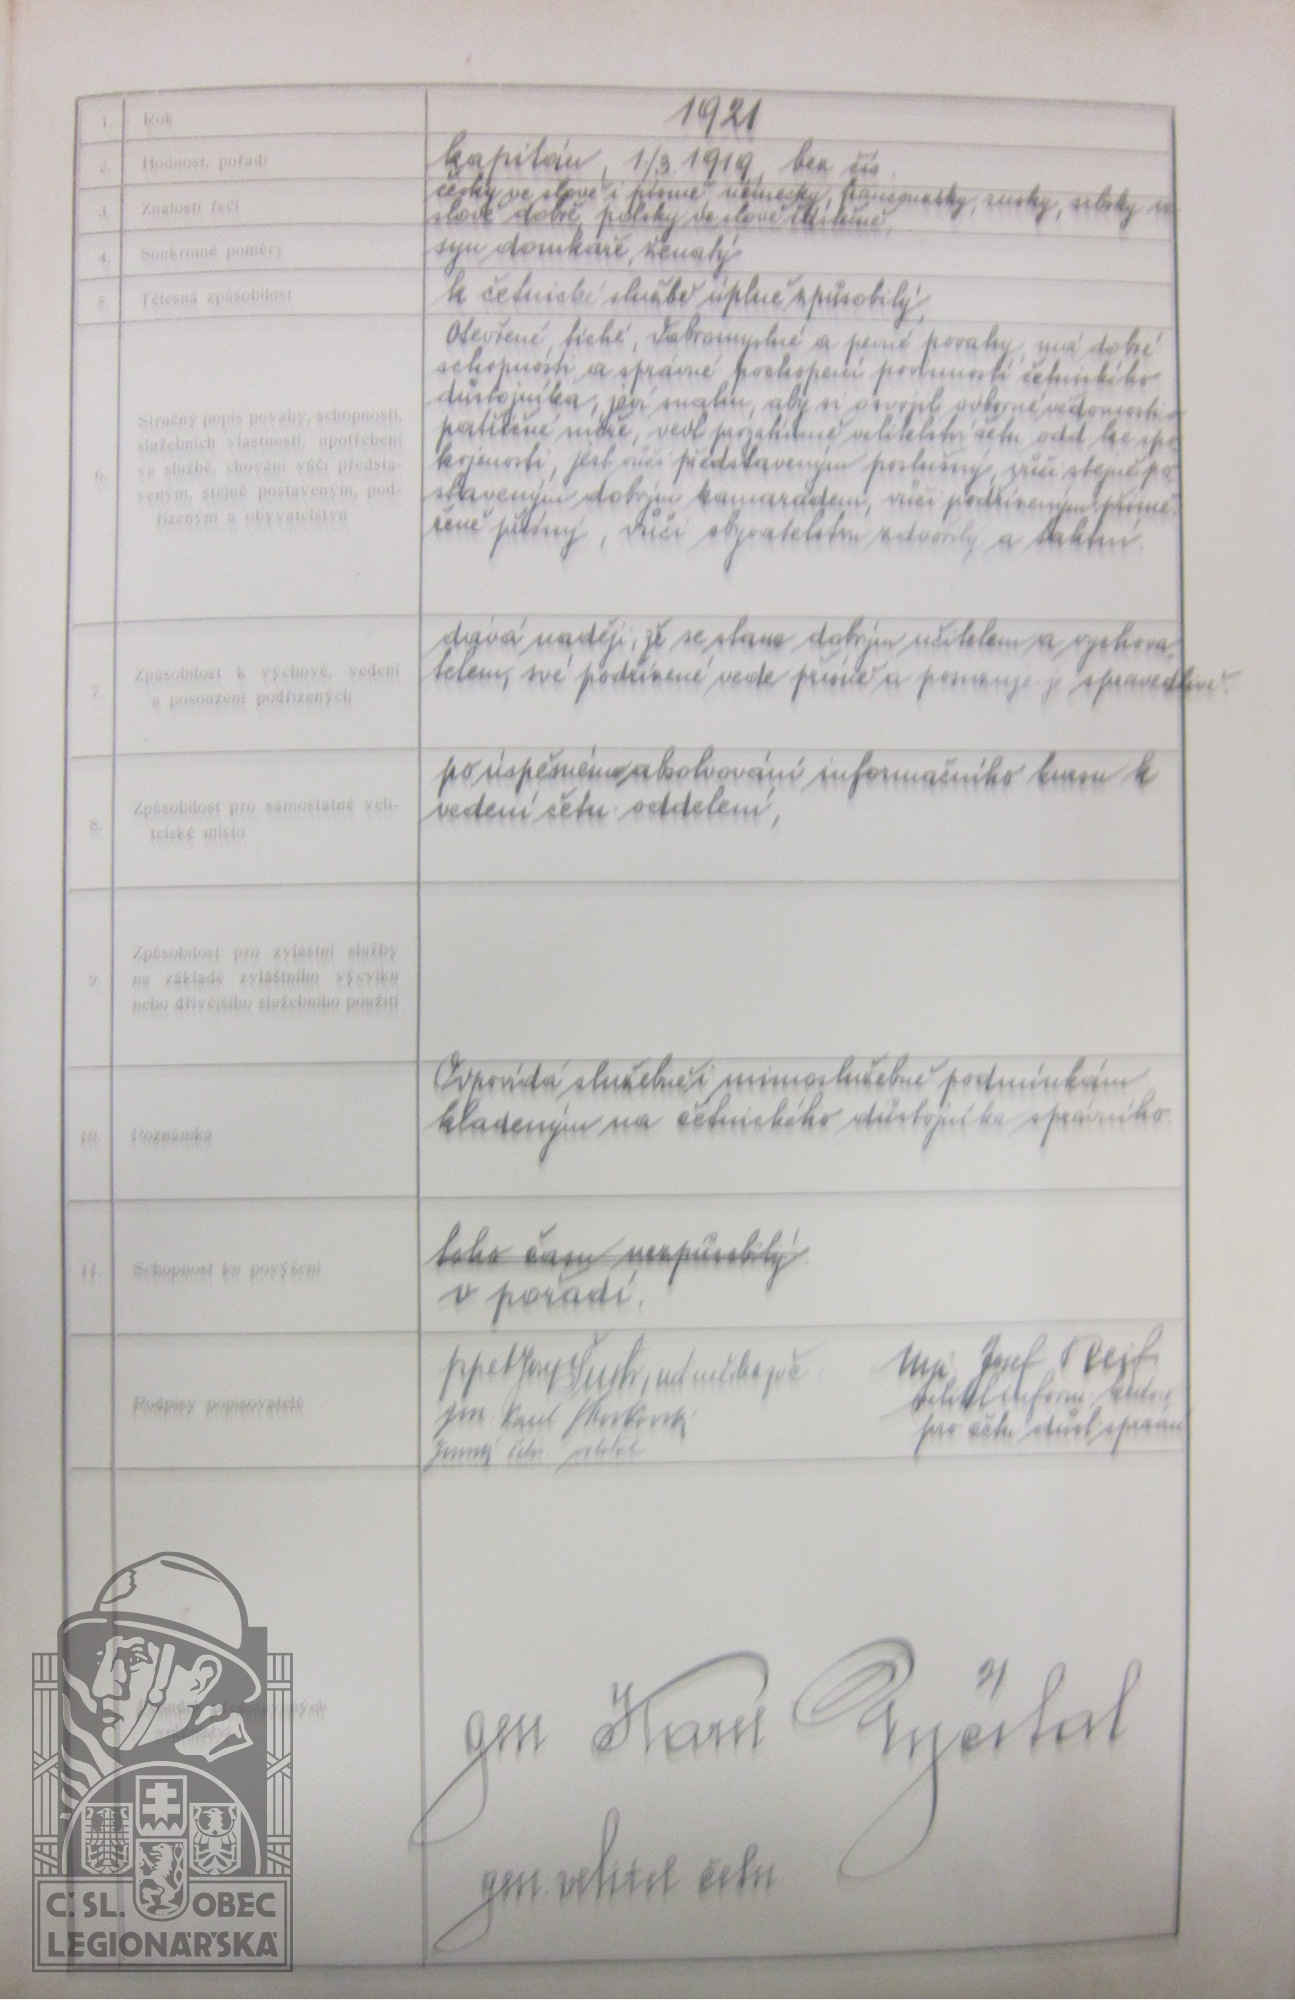 1. Rok
1921
2. Hodnost, pořadí
kapitán, 1/3. 1919, bez čís.
3. Znalosti řečí
česky ve slově i písmě německy, francouzsky, rusky, srbsky ve
slově dobře, polsky ve slově částečně,
4. Soukromé poměry
syn domkáře, ženatý
5. Tělesná způsobilost
k četnické službě úplně způsobilý,
6. Stručný popis povahy, schopností,
služebních vlastností, upotřebení
ve službě, chování vůči předsta-
veným, stejně postaveným, pod-
řízeným a obyvatelstvu
Otevřené, tiché, dobromyslné a pevné povahy, má dobré
schopnosti a správné pochopení povinností četnického
důstojníka, jeví snahu, aby si osvojil odborné vědomosti v
patřičné míře, vedl prozatímně velitelství četn. odd. ke spo
kojenosti, jest vůči představeným poslušný, vůči stejně po
staveným dobrým kamarádem, vůči podřízeným přimě-
řeně přísný, vůči obyvatelstvu zdvořilý a taktní.
7. Způsobilost k výchově, vedení
a posouzení podřízených
dává naději, že se stane dobrým učitelem a vychova-
telem, své podřízené vede přísně a posuzuje je spravedlivě.
8. Způsobilost pro samostatné veli-
telské místo
po úspěšném absolvování informačního kursu k
vedení četn. oddělení,
9. Způsobilost pro zvláštní služby
na základě zvláštního výcviku
nebo dřívějšího služebního použití
10. Poznámka
Odpovídá služebně i mimoslužebně podmínkám
kladeným na četnického důstojníka správního.
11. Schopnost ku povýšení
toho času nezpůsobilý
v pořadí.
Podpisy popisovatelů
pplt Josef
Mjr. Josef Rejf
velitel inform. kursu
pro četn. důst. správní
Karel
zemský četn. velitel
gen Karel
gen. velitel četn.
Č. SL. OBEC
LEGIONÁŘSKÁ